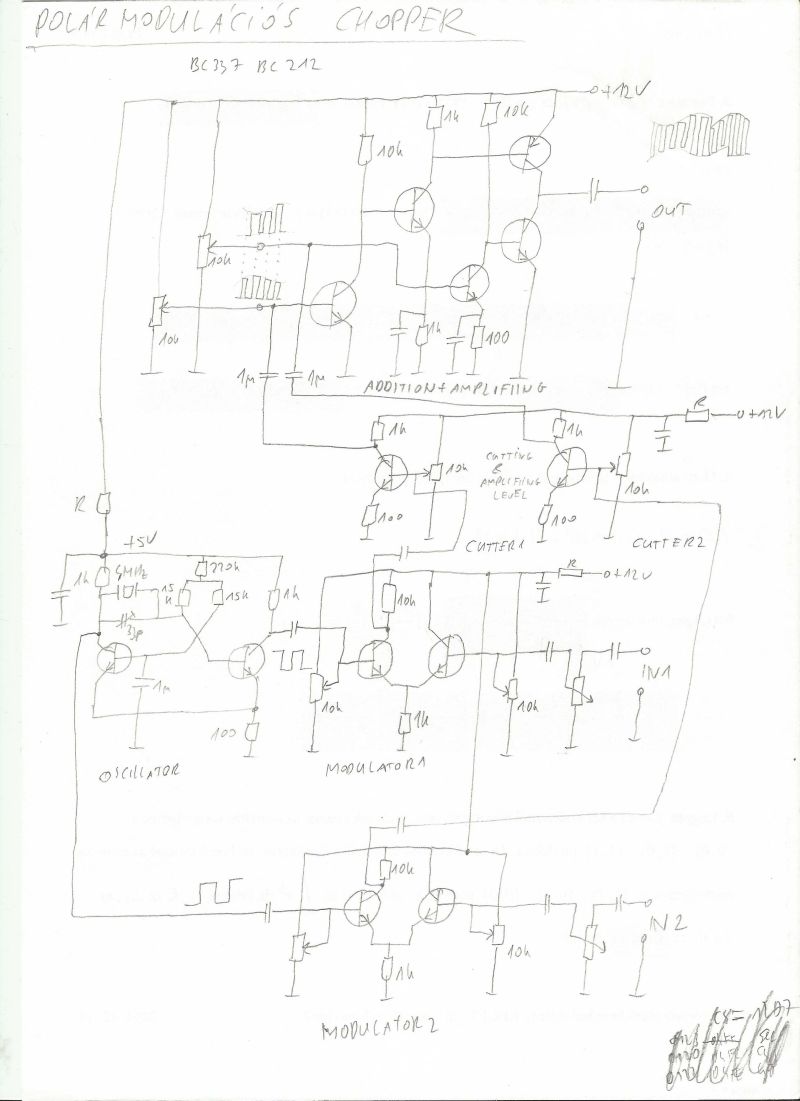 POLÁR MODULÁCIÓS CHOPPER
BC337 BC212
+12V
1k
10k
10k
OUT
10k
10k
1k
100
1µ
1µ
ADDITION+AMPLIFIING
R
+12V
1k
10k
CUTTING
&
AMPLIFIING
LEVEL
1k
10k
100
100
CUTTER1
CUTTER2
R
+5V
220k
1k
MHz
15k
15k
1k
R
+12V
10k
1µ
100
10k
1k
10k
IN1
OSCILLATOR
MODULATOR1
10k
10k
1k
IN2
MODULATOR2